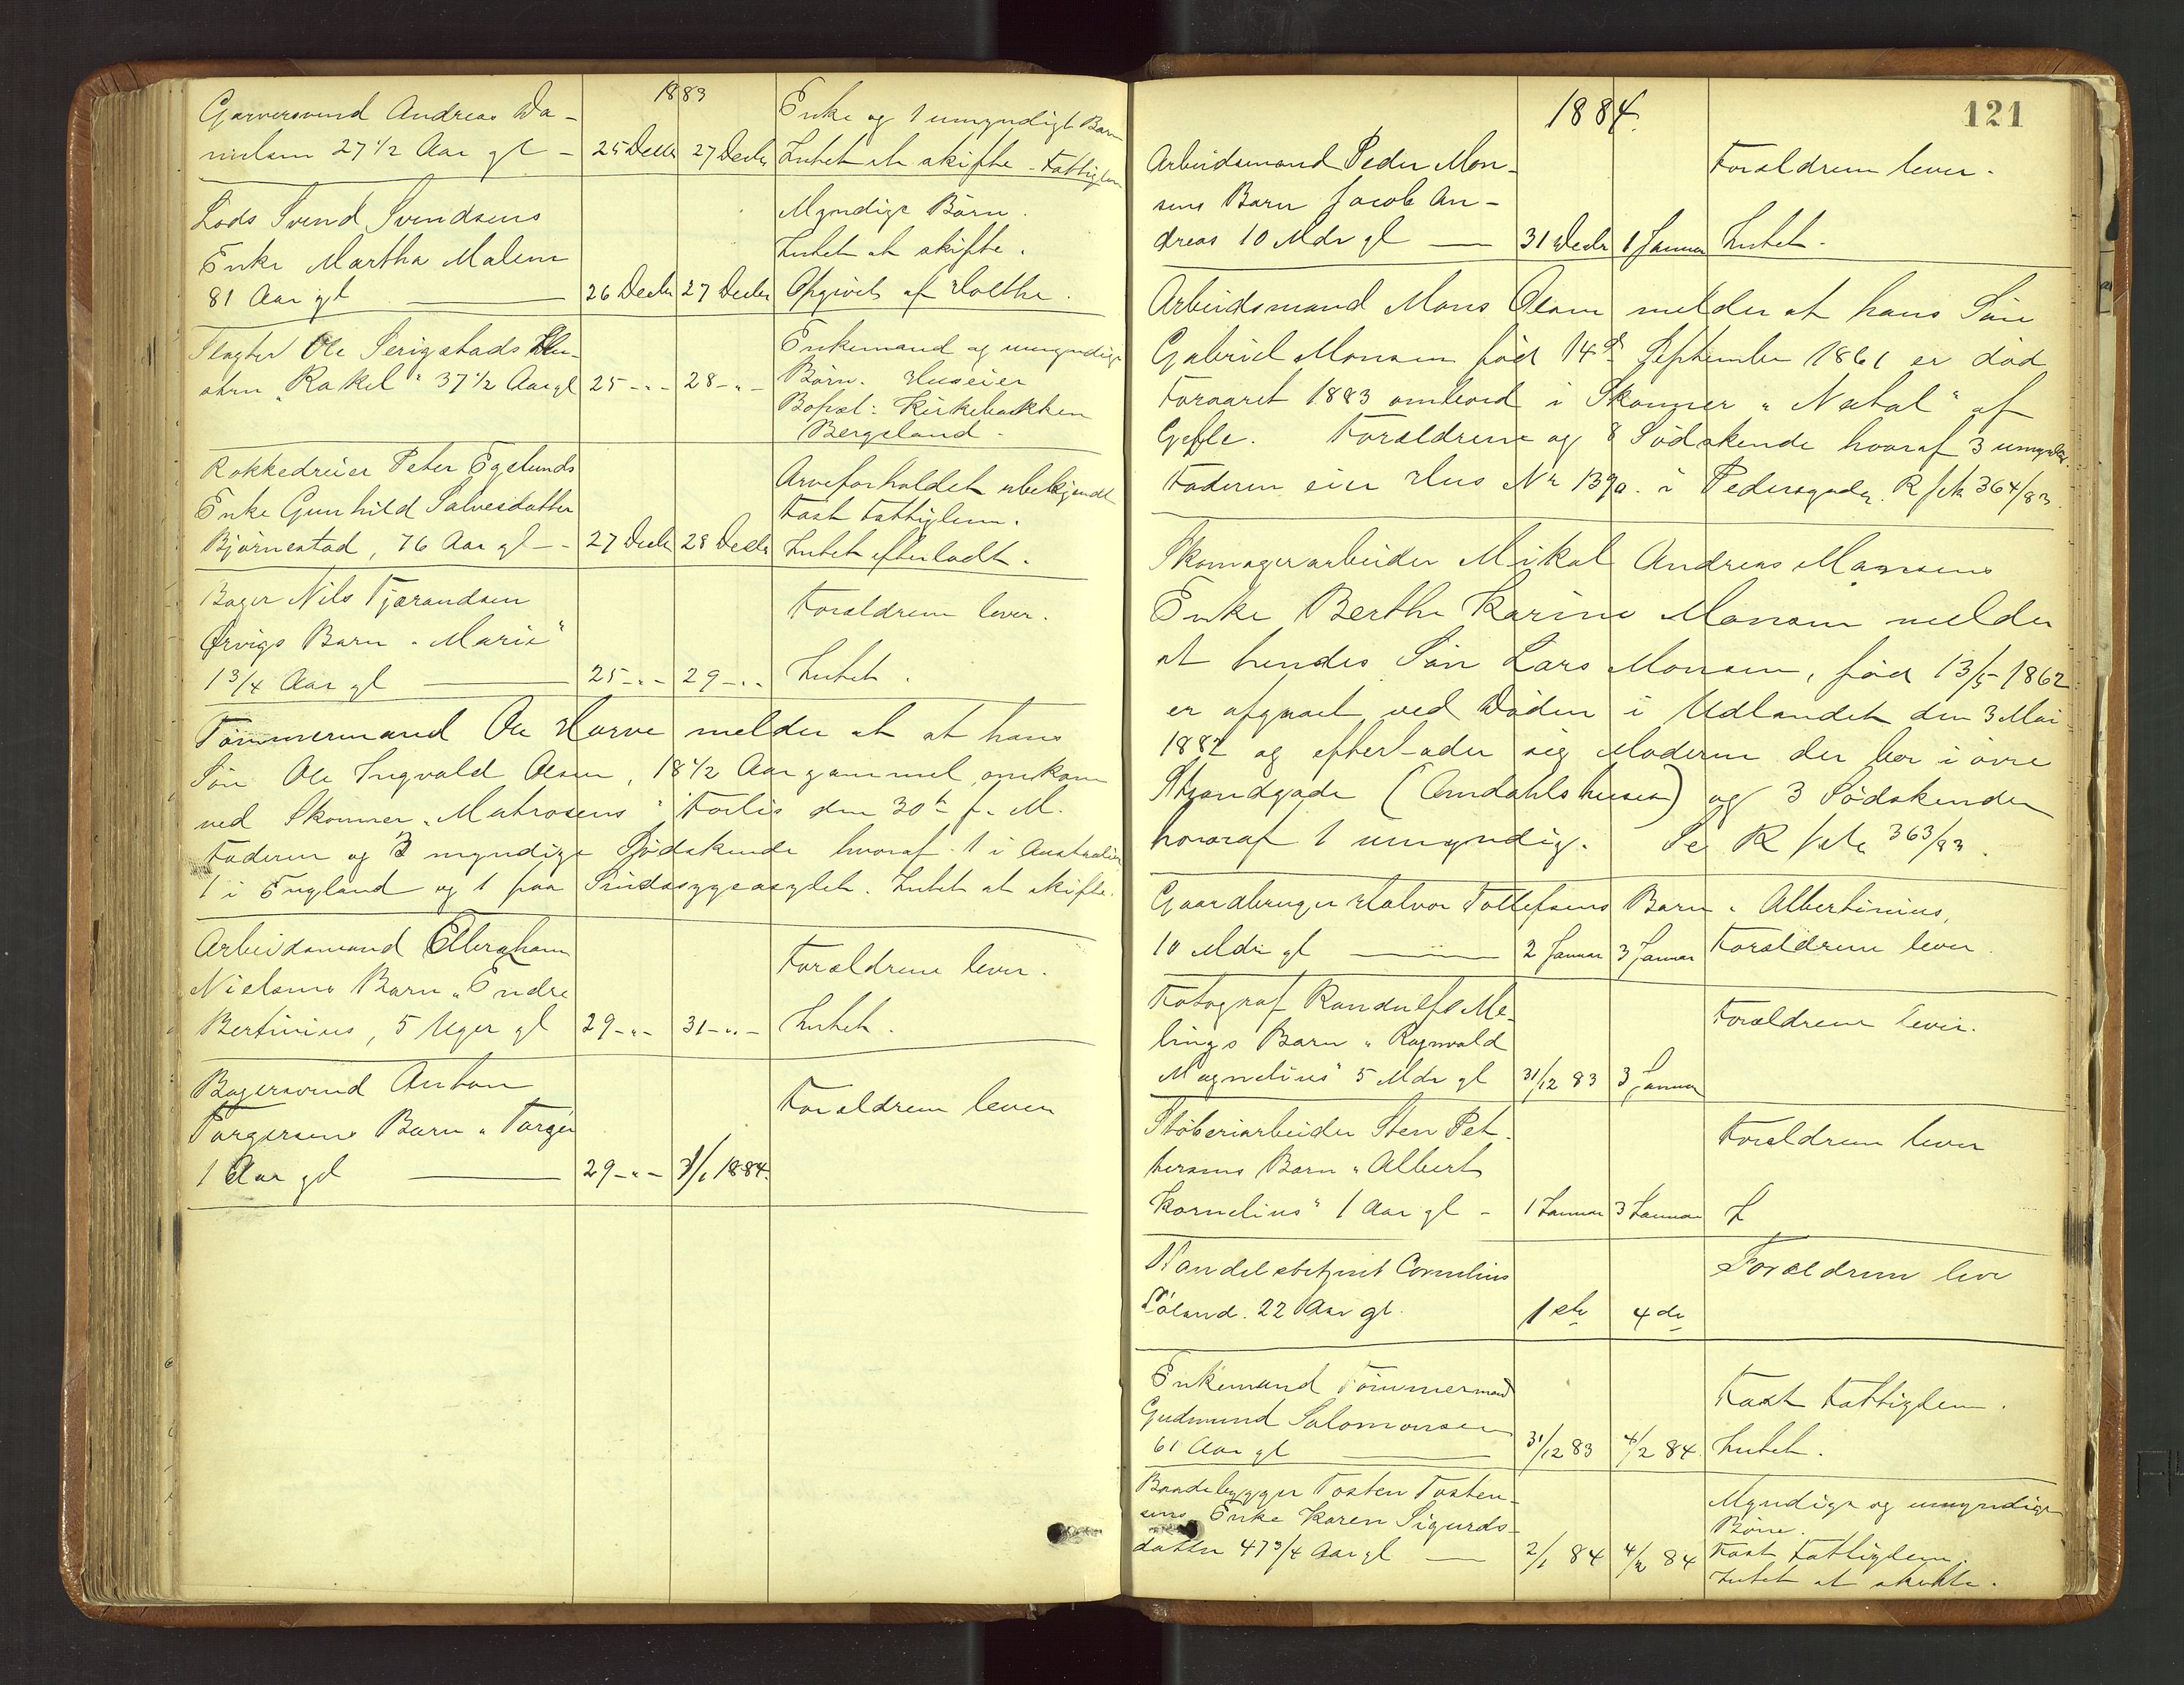 1883
Garversvend Andreas Da-
nielsen 27 1/2 Aar gl - 25 Decbr 27 Decbr
Enke og 1 umyndigt Barn
Intet at skifte - Fattiglem
Lods Svend Svendsens
Enke Martha Malene
81 Aar gl — 26 Decbr 27 Decbr
Myndige Börn.
Intet at skifte.
Opgivet af Holthe.
Slagter Ole Serigstads Hu-
stru "Rakel" 37 1/2 Aar gl 25 -"- 28 -"-
Enkemand og umyndige
Börn. Huseier
Bopæl: Kirkebakken
Bergeland.
Rokkedreier Peter Egelunds
Enke Gunhild Salvesdatter
Bjørnestad, 76 Aar gl - 27 Decbr 28 Decbr
Arveforholdet ubekjendt
Fast Fattiglem.
Intet efterladt.
Bager Nils Tjerandsen
Ørvigs Barn "Marie"
1 3/4 Aar gl — 25 -"- 29 -"-
Forældrene lever.
Intet.
Tømmermand Ole Horve melder at at hans
Søn Ole Ingvald Olsen, 18 1/2 Aar gammel omkom
ved Skonner "Matrosens" Forlis den 30te f. M.
Faderen og 3 myndige Sødskende hvoraf 1 i Australien
1 i England og 1 paa Sindssygeasylet. Intet at skifte.
Arbeidsmand Elbergham
Nielsens Barn "Endre
Bertinius, 5 Uger gl 29 -"- 31 -"-
Forældrene lever.
Intet.
Bagersvend Anton
Torgersens Barn "Torger
1 Aar gl — 29 -"- 3/1 1884.
Forældrene lever
121
1884.
Arbeidsmand Peder Mon-
sens Barn Jacob An-
dreas 10 Mdr gl — 31 Decbr 1 Januar
Forældrene lever.
Intet.
Arbeidsmand Mons Olsen melder at hans Sön
Gabriel Monsen född 14de September 1861 er död
Foraaret 1883 ombord i Skonner "Natal" af
Gefle. Forældrene og 8 Södskende hvoraf 3 umyndig.
Faderen eier Hus No 139a. i Pedersgade. R fsk 364/83.
Skomagerarbeider Mikal Andreas Monsens
Enke Berthe Karine Monsen melder
at hendes Sön Lars Monsen, född 13/5 1862
er afgaaet ved Döden i Udlandet den 3 Mai
1882 og efterlader sig Moderen der bor i övre
Strandgade (Omdahlshuset) og 3 Södskende
hvoraf 1 umyndig. Se R fsk 363/83.
Gaardbruger Halvor Tollefsens Barn "Albertinius,
10 Mdr gl — 2 Januar 3 Januar Forældrene lever
Fotograf Randulfs Me-
lings Barn "Ragnvald
Magnelius" 5 Mdr gl 31/12 83 3 Januar
Forældrene lever.
Støberiarbeider Sten Pet-
tersens Barn "Albert
Kornelius" 1 Aar gl - 1 Januar 3 Januar
Forældrene lever
I
Handelsbetjent Cornelius
Göland. 22 Aar gl. 1ste 4de
Forældrene leve
Enkemand Tömmermand
Gudmund Salomonsen
61 Aar gl — 31/12 83 4/2 84.
Fast Fattiglem.
Intet.
Baadebygger Tosten Tosten-
sens Enke Karen Sigurds-
datter 47 3/4 Aar gl — 2/1 84 4/2 84
Myndige og umyndige
Börn.
Fast Fattiglem.
Intet at skifte.